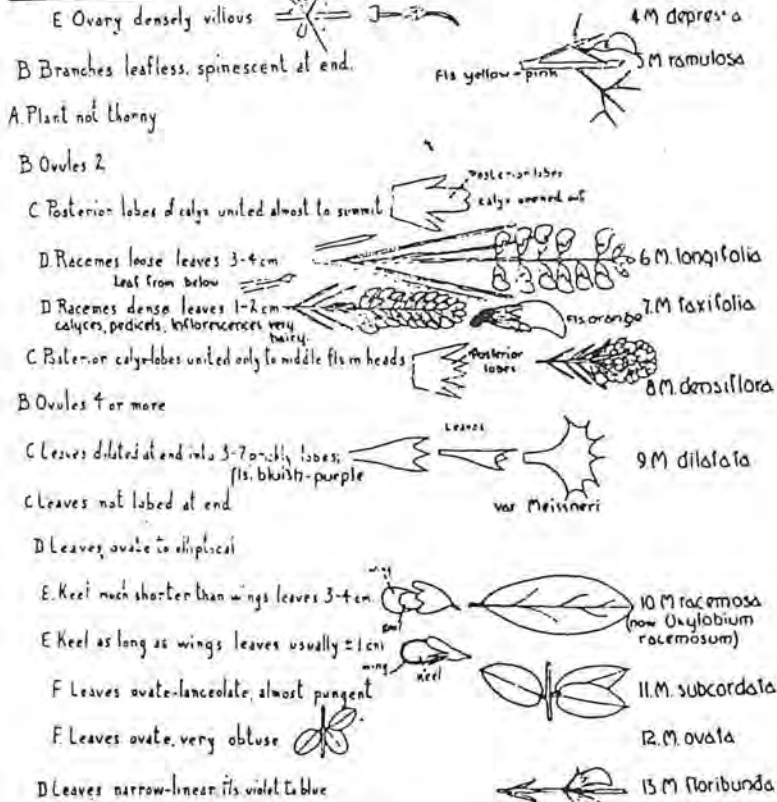 E Ovary densely villous
4 M depressa
B Branches leafless, spinescent at end.
Fls yellow-pink
5 M ramulosa
A. Plant not thorny
B Ovules 2
Posterior lobes
C Posterior lobes of calyx united almost to summit
calyx opened out
D. Racemes loose leaves 3-4 cm
6 M. longifolia
Leaf from below
D Racemes dense leaves 1-2 cm
calyces, pedicels, inflorescences very hairy.
Fls. orange
7. M. taxifolia
C Posterior calyx-lobes united only to middle fls in heads
Posterior lobes
8 M. densiflora
B Ovules 4 or more
Leaves
C Leaves dilated at end into 3-7 prickly lobes;
fls. bluish-purple
9. M dilatata
var Meissneri
C Leaves not lobed at end
D Leaves, ovate to elliptical
wing
E. Keel much shorter than wings leaves 3-4 cm.
keel
10 M racemosa
(now Oxylobium
racemosum)
E Keel as long as wings leaves usually ± 1 cm
wing
keel
F Leaves ovate-lanceolate, almost pungent
11. M. subcordata
F. Leaves ovate, very obtuse
12. M. ovata
D Leaves narrow-linear, fls violet to blue
13 M floribunda